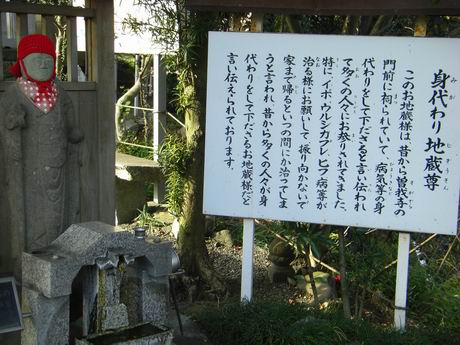 身代わり地蔵尊
このお地蔵様は昔から曽我寺の
門前に祠られていて、病気等の身
代わりをして下ださると言い伝われ
て多くの人々にお参りされてきました。
特に、イボ、ウルシカブレ、ヒフ病等が
治る様にお願いして振り向かないで
家まで帰るといつの間にか治ってしま
うと言われ、昔から多くの人々が身
代わりをして下ださるお地蔵様だと
言い伝えられております。